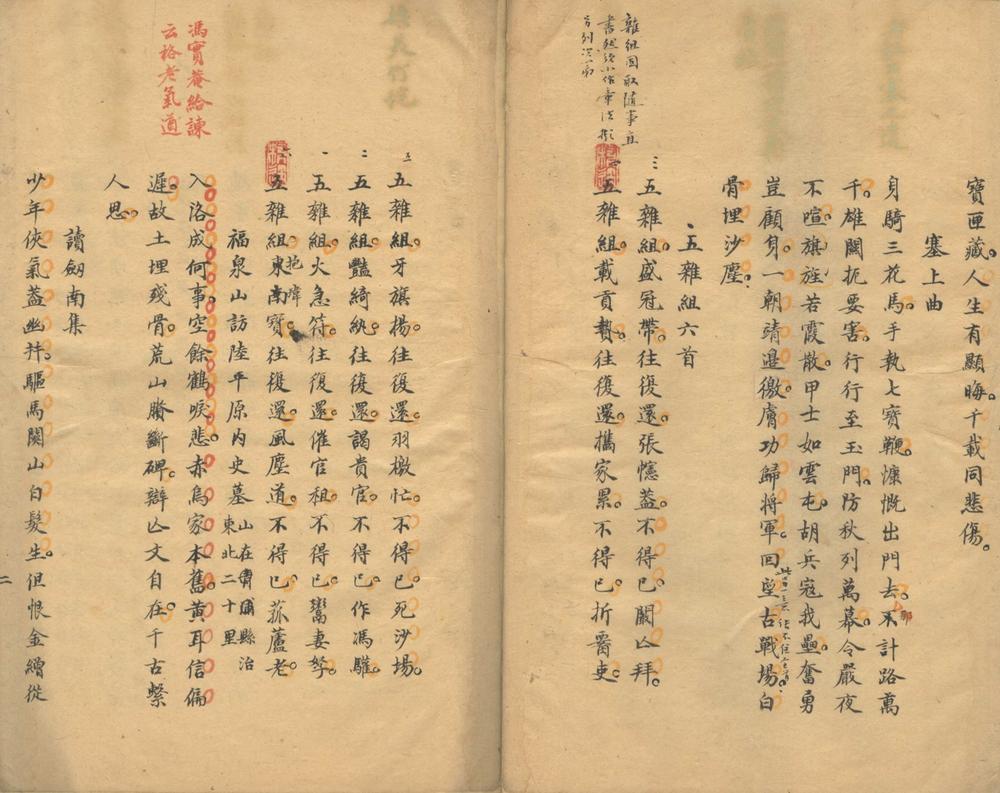 寶匣藏人生有顯晦千載同悲傷
塞上曲
身騎三花馬手執七寶鞭慷慨出門去不計路萬
那
千雄關扼要害行行至玉門防秋列萬幕令嚴夜
不喧旗旌若霞散甲士如雲屯胡兵寇我壘奮勇
豈顧身一朝靖邊徼膚功歸將軍回望古戰場白
骨埋沙塵
五雜組六首
三
五雜組盛冠帶往復還張幰蓋不得已闕上拜
雜組固取隨事宜
四
五雜組載貢贄往復還攜家累不得已折爵吏
五
五雜組牙旗揚往復還羽檄忙不得已死沙場
二
五雜組豔綺紈往復還謁貴官不得已作馮驩
一
五雜組火急符往復還催官租不得已鬻妻孥
六
五雜組東南寶往復還風塵道不得已菰蘆老
抱
福泉山訪陸平原內史墓
山在青浦縣治
東北二十里
入洛成何事空餘鶴唳悲赤烏家本舊黃耳信偏
遲故土埋殘骨荒山賸斷碑辯亡文自在千古繫
人思
馮實菴給諫
云格老氣遒
讀劍南集
少年俠氣蓋幽并驅馬關山白髮生但恨金繒從
二